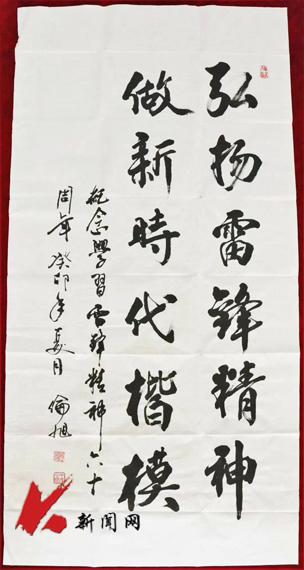 弘扬雷锋精神
做新時代楷模
纪念學習雷锋精神六十
周年 癸卯年夏月 倫旭
新闻网